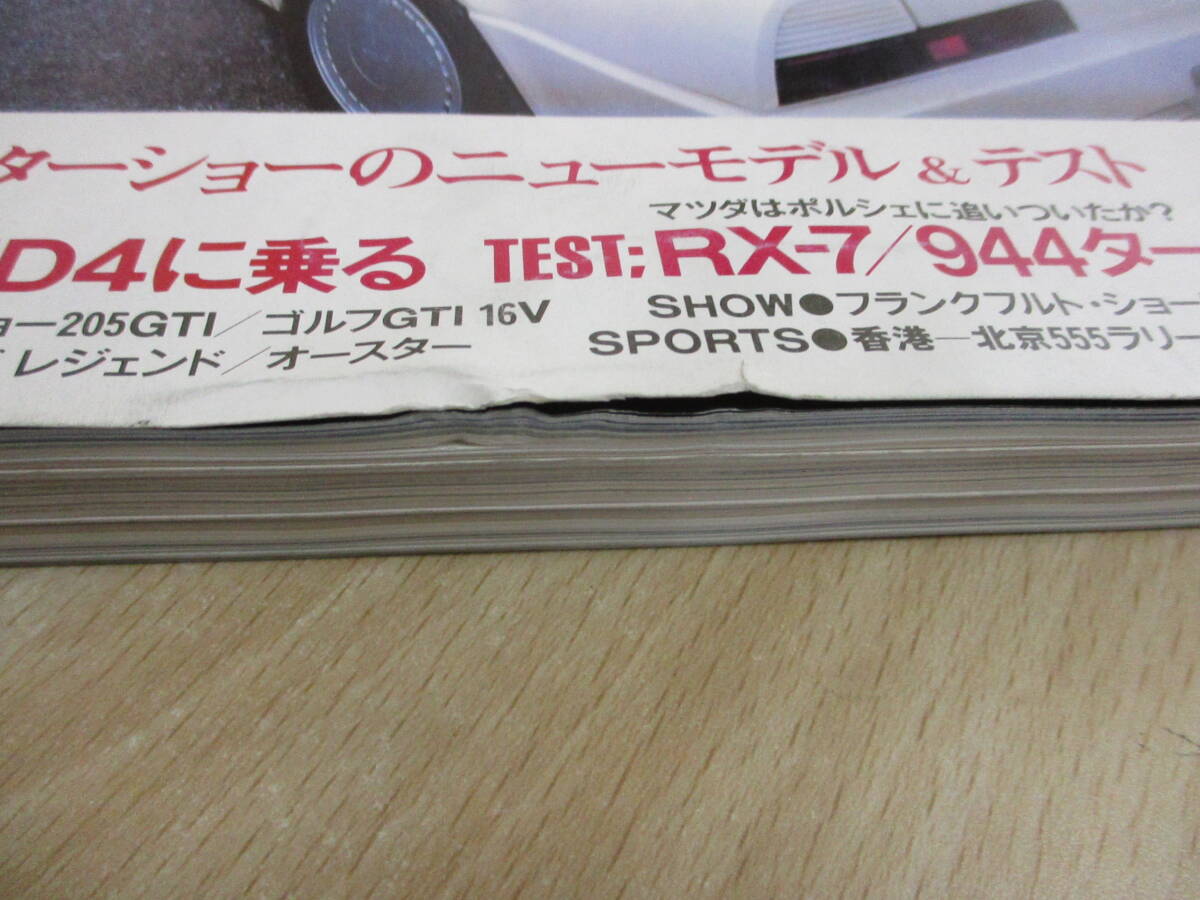 ターショーのニューモデル&テスト
マツダはポルシェに追いついたか?
D4に乗る TEST;RX-7/944ター
ョー205GTI/ゴルフGTI 16V
レジェンド/オースター
SHOW●フランクフルト・ショー
SPORTS●香港—北京555ラリー